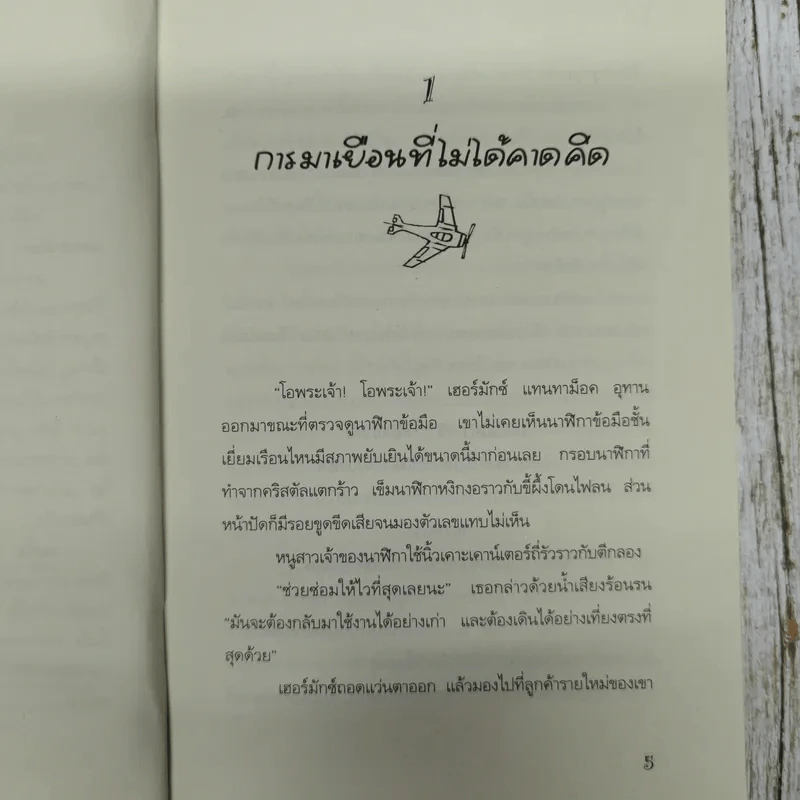 1
การมาเยือนที่ไม่ได้คาดคิด
“โอพระเจ้า! โอพระเจ้า!” เฮอร์มักซ์ แทนทาม็อค อุทาน
ออกมาขณะที่ตรวจดูนาฬิกาข้อมือ เขาไม่เคยเห็นนาฬิกาข้อมือชั้น
เยี่ยมเรือนไหนมีสภาพยับเยินได้ขนาดนี้มาก่อนเลย กรอบนาฬิกาที่
ทำจากคริสตัลแตกร้าว เข็มนาฬิกาหงิกงอราวกับขี้ผึ้งโดนไฟลน ส่วน
หน้าปัดก็มีรอยขูดขีดเสียจนมองตัวเลขแทบไม่เห็น
หนูสาวเจ้าของนาฬิกาใช้นิ้วเคาะเคาน์เตอร์ถี่รัวราวกับตีกลอง
“ช่วยซ่อมให้ไวที่สุดเลยนะ” เธอกล่าวด้วยน้ำเสียงร้อนรน
“มันจะต้องกลับมาใช้งานได้อย่างเก่า และต้องเดินได้อย่างเที่ยงตรงที่
สุดด้วย”
เฮอร์มักซ์ถอดแว่นตาออก แล้วมองไปที่ลูกค้ารายใหม่ของเขา
5